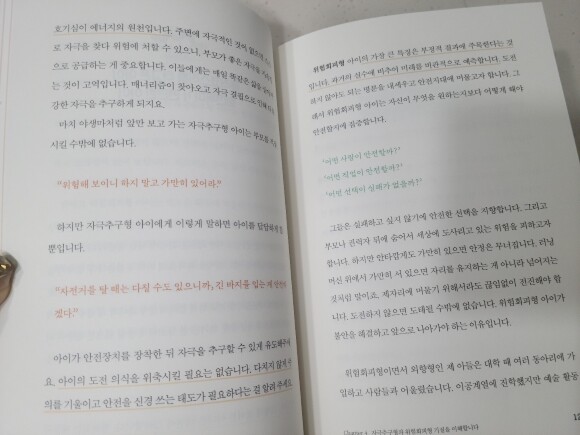 호기심이 에너지의 원천입니다. 주변에 자극적인 것이 없으면
로 자극을 찾다 위험에 처할 수 있으니, 부모가 좋은 자극을
으로 공급하는 게 중요합니다. 이들에게는 매일 똑같은 삶을
는 것이 고역입니다. 매너리즘이 찾아오고 자극 결핍으로
강한 자극을 추구하게 되지요.
마치 야생마처럼 앞만 보고 가는 자극추구형 아이는 부모를
시킬 수밖에 없습니다.
“위험해 보이니 하지 말고 가만히 있어라.”
하지만 자극추구형 아이에게 이렇게 말하면 아이를 답답하게 할
뿐입니다.
“자전거를 탈 때는 다칠 수도 있으니까, 긴 바지를 입는 게
겠다.”
아이가 안전장치를 장착한 뒤 자극을 추구할 수 있게
요. 아이의 도전 의식을 위축시킬 필요는 없습니다. 다치지 않게
의를 기울이고 안전을 신경 쓰는 태도가 필요하다는 걸 알려 주세요.
위험회피형 아이의 가장 큰 특징은 부정적 결과에 주목한다는 것
입니다. 과거의 실수에 비추어 미래를 비관적으로 예측합니다. 도전
하지 않아도 되는 명분을 내세우고 안전지대에 머물고자 합니다. 그
래서 위험회피형 아이는 자신이 무엇을 원하는지보다 어떻게 해야
안전할지에 집중합니다.
“어떤 사람이 안전할까?”
“어떤 직업이 안전할까?”
“어떤 선택이 실패가 없을까?”
그들은 실패하고 싶지 않기에 안전한 선택을 지향합니다. 그리고
부모나 권력자 뒤에 숨어서 세상에 도사리고 있는 위험을 피하고자
합니다. 하지만 안타깝게도 가만히 있으면 안정은 무너집니다. 러닝
머신 위에서 가만히 서 있으면 자리를 유지하는 게 아니라 넘어지는
것처럼 말이죠. 제자리에 머물기 위해서라도 끊임없이 전진해야 합
니다. 전진하지 않으면 도태될 수밖에 없습니다. 위험회피형 아이가
불안을 해결하고 앞으로 나아가야 하는 이유입니다.
위험회피형이면서 외향형인 제 아들은 대학 때 여러 동아리에 가
입하고 사람들과 어울렸습니다. 이공계열에 진학했지만 예술 활동
Chapter 4. 자극추구형과 위험회피형 기질을 이해합니다